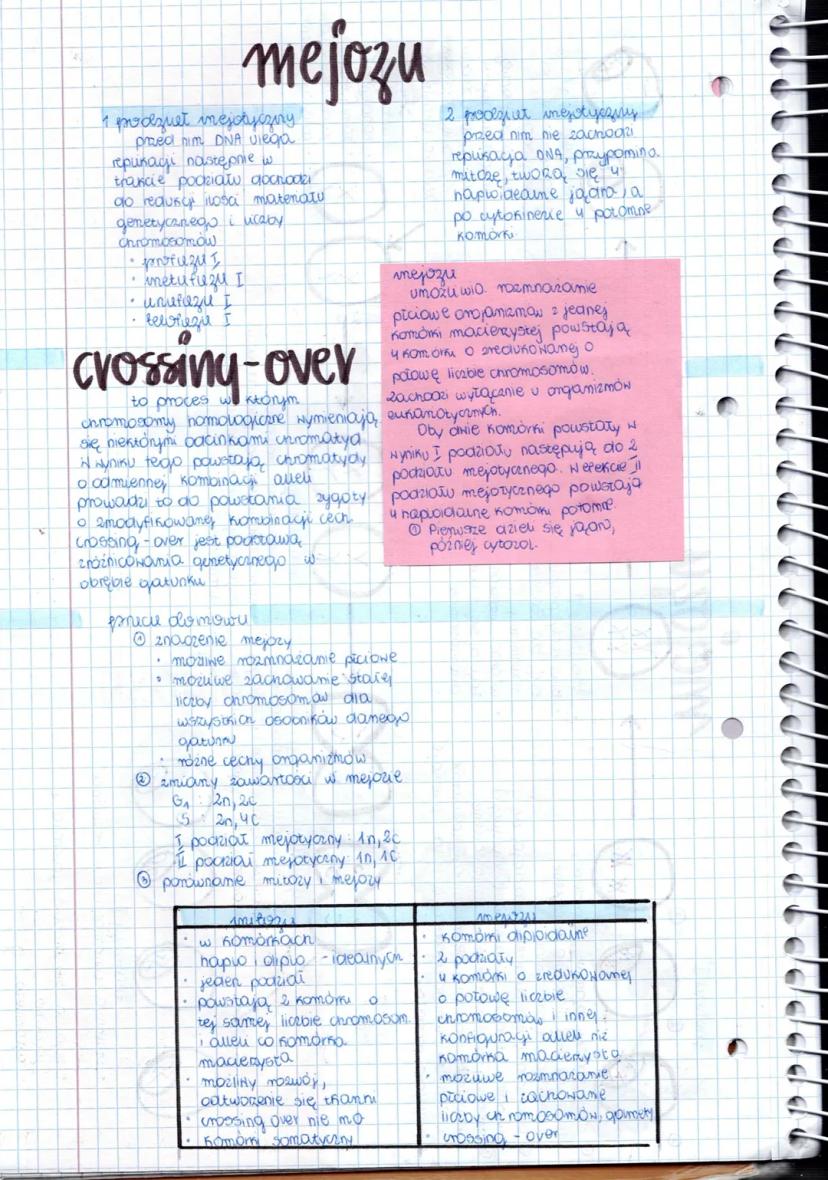 mejoza
1 podział mejotyczny
przed nim DNA ulega
replikacji następnie w
trakcie podziału dochodzi
do redukcji ilości materiału
genetycznego i liczby
chromosomów
· profaza I
· metafaza I
· anafaza I
· telofaza I
2 podział mejotyczny
przed nim nie zachodzi
replikacja DNA, przypomina
mitozę, tworzą się 4
haploidalne jądra, a
po cytokinezie 4 potomne
komórki
mejoza
umożliwia rozmnażanie
płciowe organizmów z jednej
komórki macierzystej powstają
4 komórki o zredukowanej o
połowę liczbie chromosomów.
zachodzi wyłącznie u organizmów
eukariotycznych.
Oby dwie komórki powstały w
wyniku I podziału następują do 2
podziału mejotycznego. W efekcie II
podziału mejotycznego powstają
4 haploidalne komórki potomne
① Pierwsze dzieli się jądro,
później cytozol.
crossing-over
to proces w którym
chromosomy homologiczne wymieniają
się niektórymi odcinkami chromatyd
W wyniku tego powstają chromatydy
o odmiennej kombinacji alleli
prowadzi to do powstania zygoty
o zmodyfikowanej kombinacji cech
crossing-over jest podstawą
zróżnicowania genetycznego w
obrębie gatunku
praca domowa
① znaczenie mejozy
· możliwe rozmnażanie płciowe
· możliwe zachowanie stałej
liczby chromosomów dla
wszystkich osobników danego
gatunku
· różne cechy organizmów
② zmiany zawartości w mejozie
G1 : 2n, 2c
S : 2n, 4c
I podział mejotyczny: 1n, 2c
II podział mejotyczny: 1n, 1c
③ porównanie mitozy i mejozy
mitoza
· w komórkach
haplo i diplo -idealnych
· jeden podział
· powstają 2 komórki o
tej samej liczbie chromosom
i alleli co komórka
macierzysta
· możliwy rozwój,
odtworzenie się tkanki
· crossing over nie ma
· komórki somatyczny
mejoza
· komórki diploidalne
· 2 podziały
· 4 komórki o zredukowanej
o połowę liczbie
chromosomów i innej
konfiguracji alleli niż
komórka macierzysta
· możliwe rozmnażanie
płciowe i zachowanie
liczby chromosomów, gamety
· crossing - over